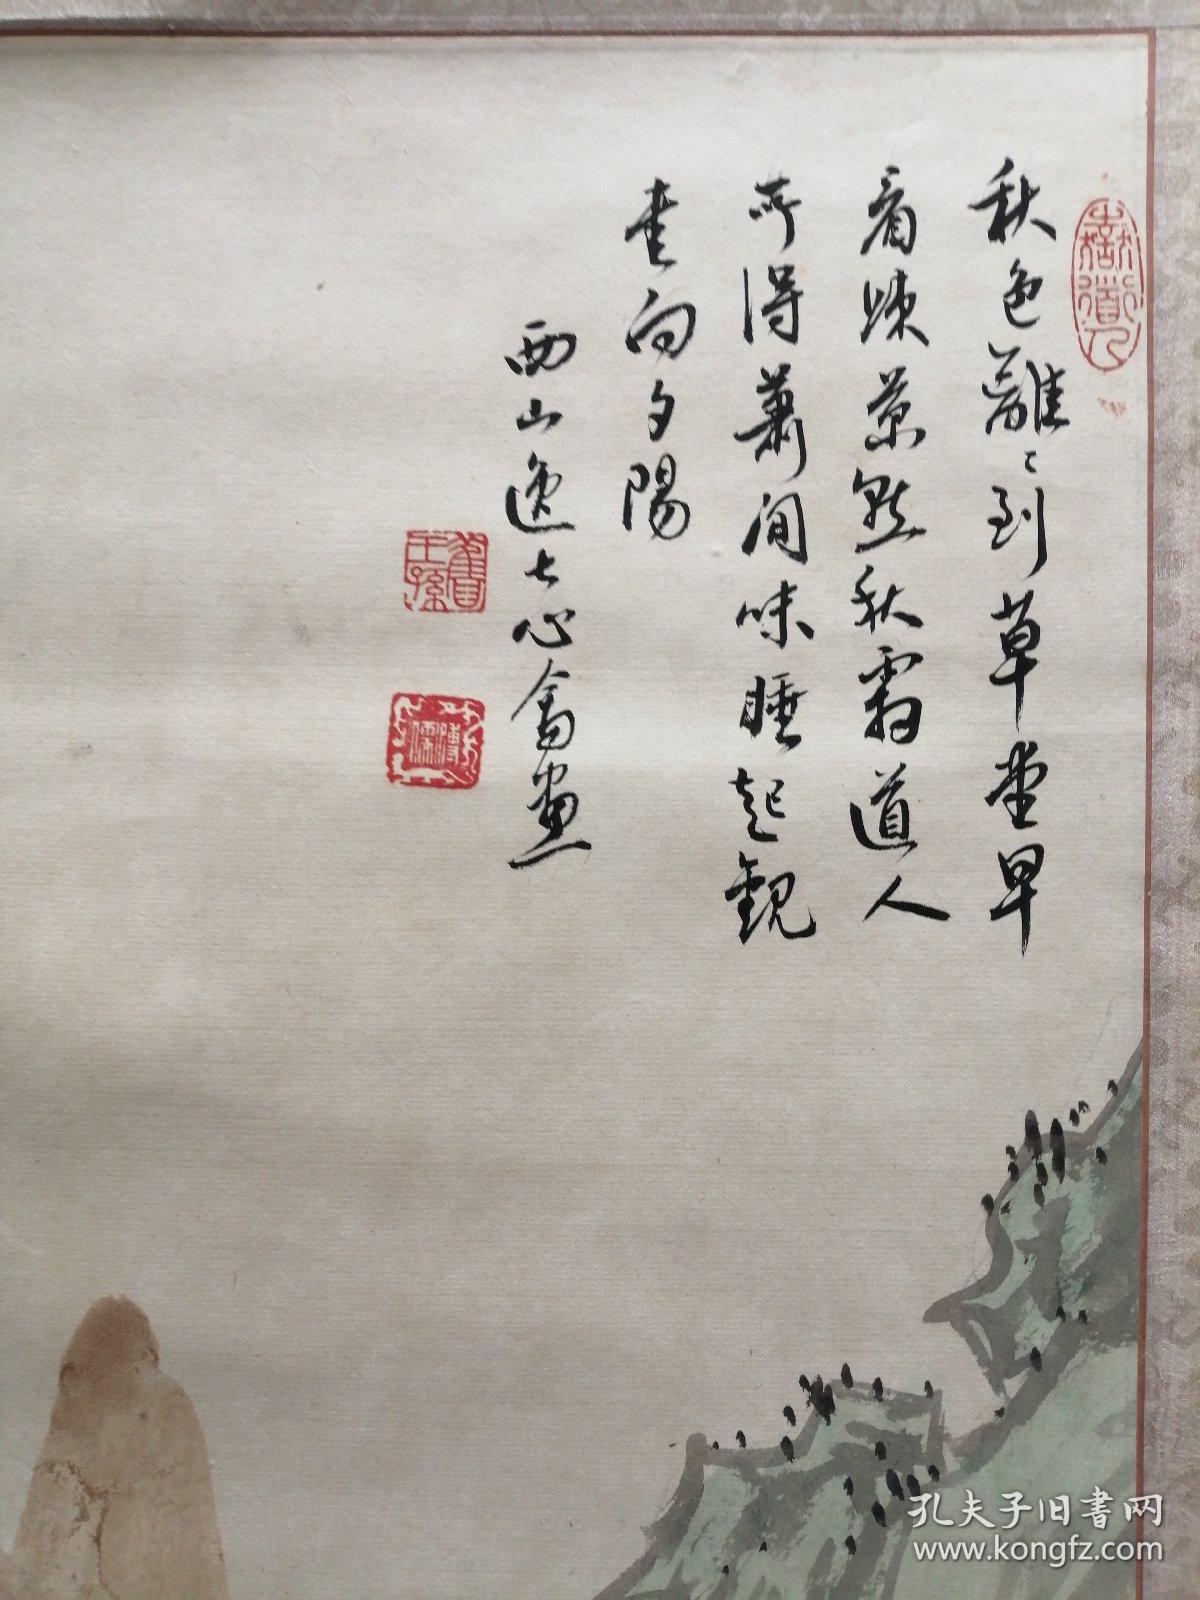 秋色離〻到草堂早
看疎葉點秋霜道人
所得蕭閒味睡起觀
書向夕陽
西山逸士心畬畫
舊王孫
溥儒
孔夫子旧書网
www.kongfz.com